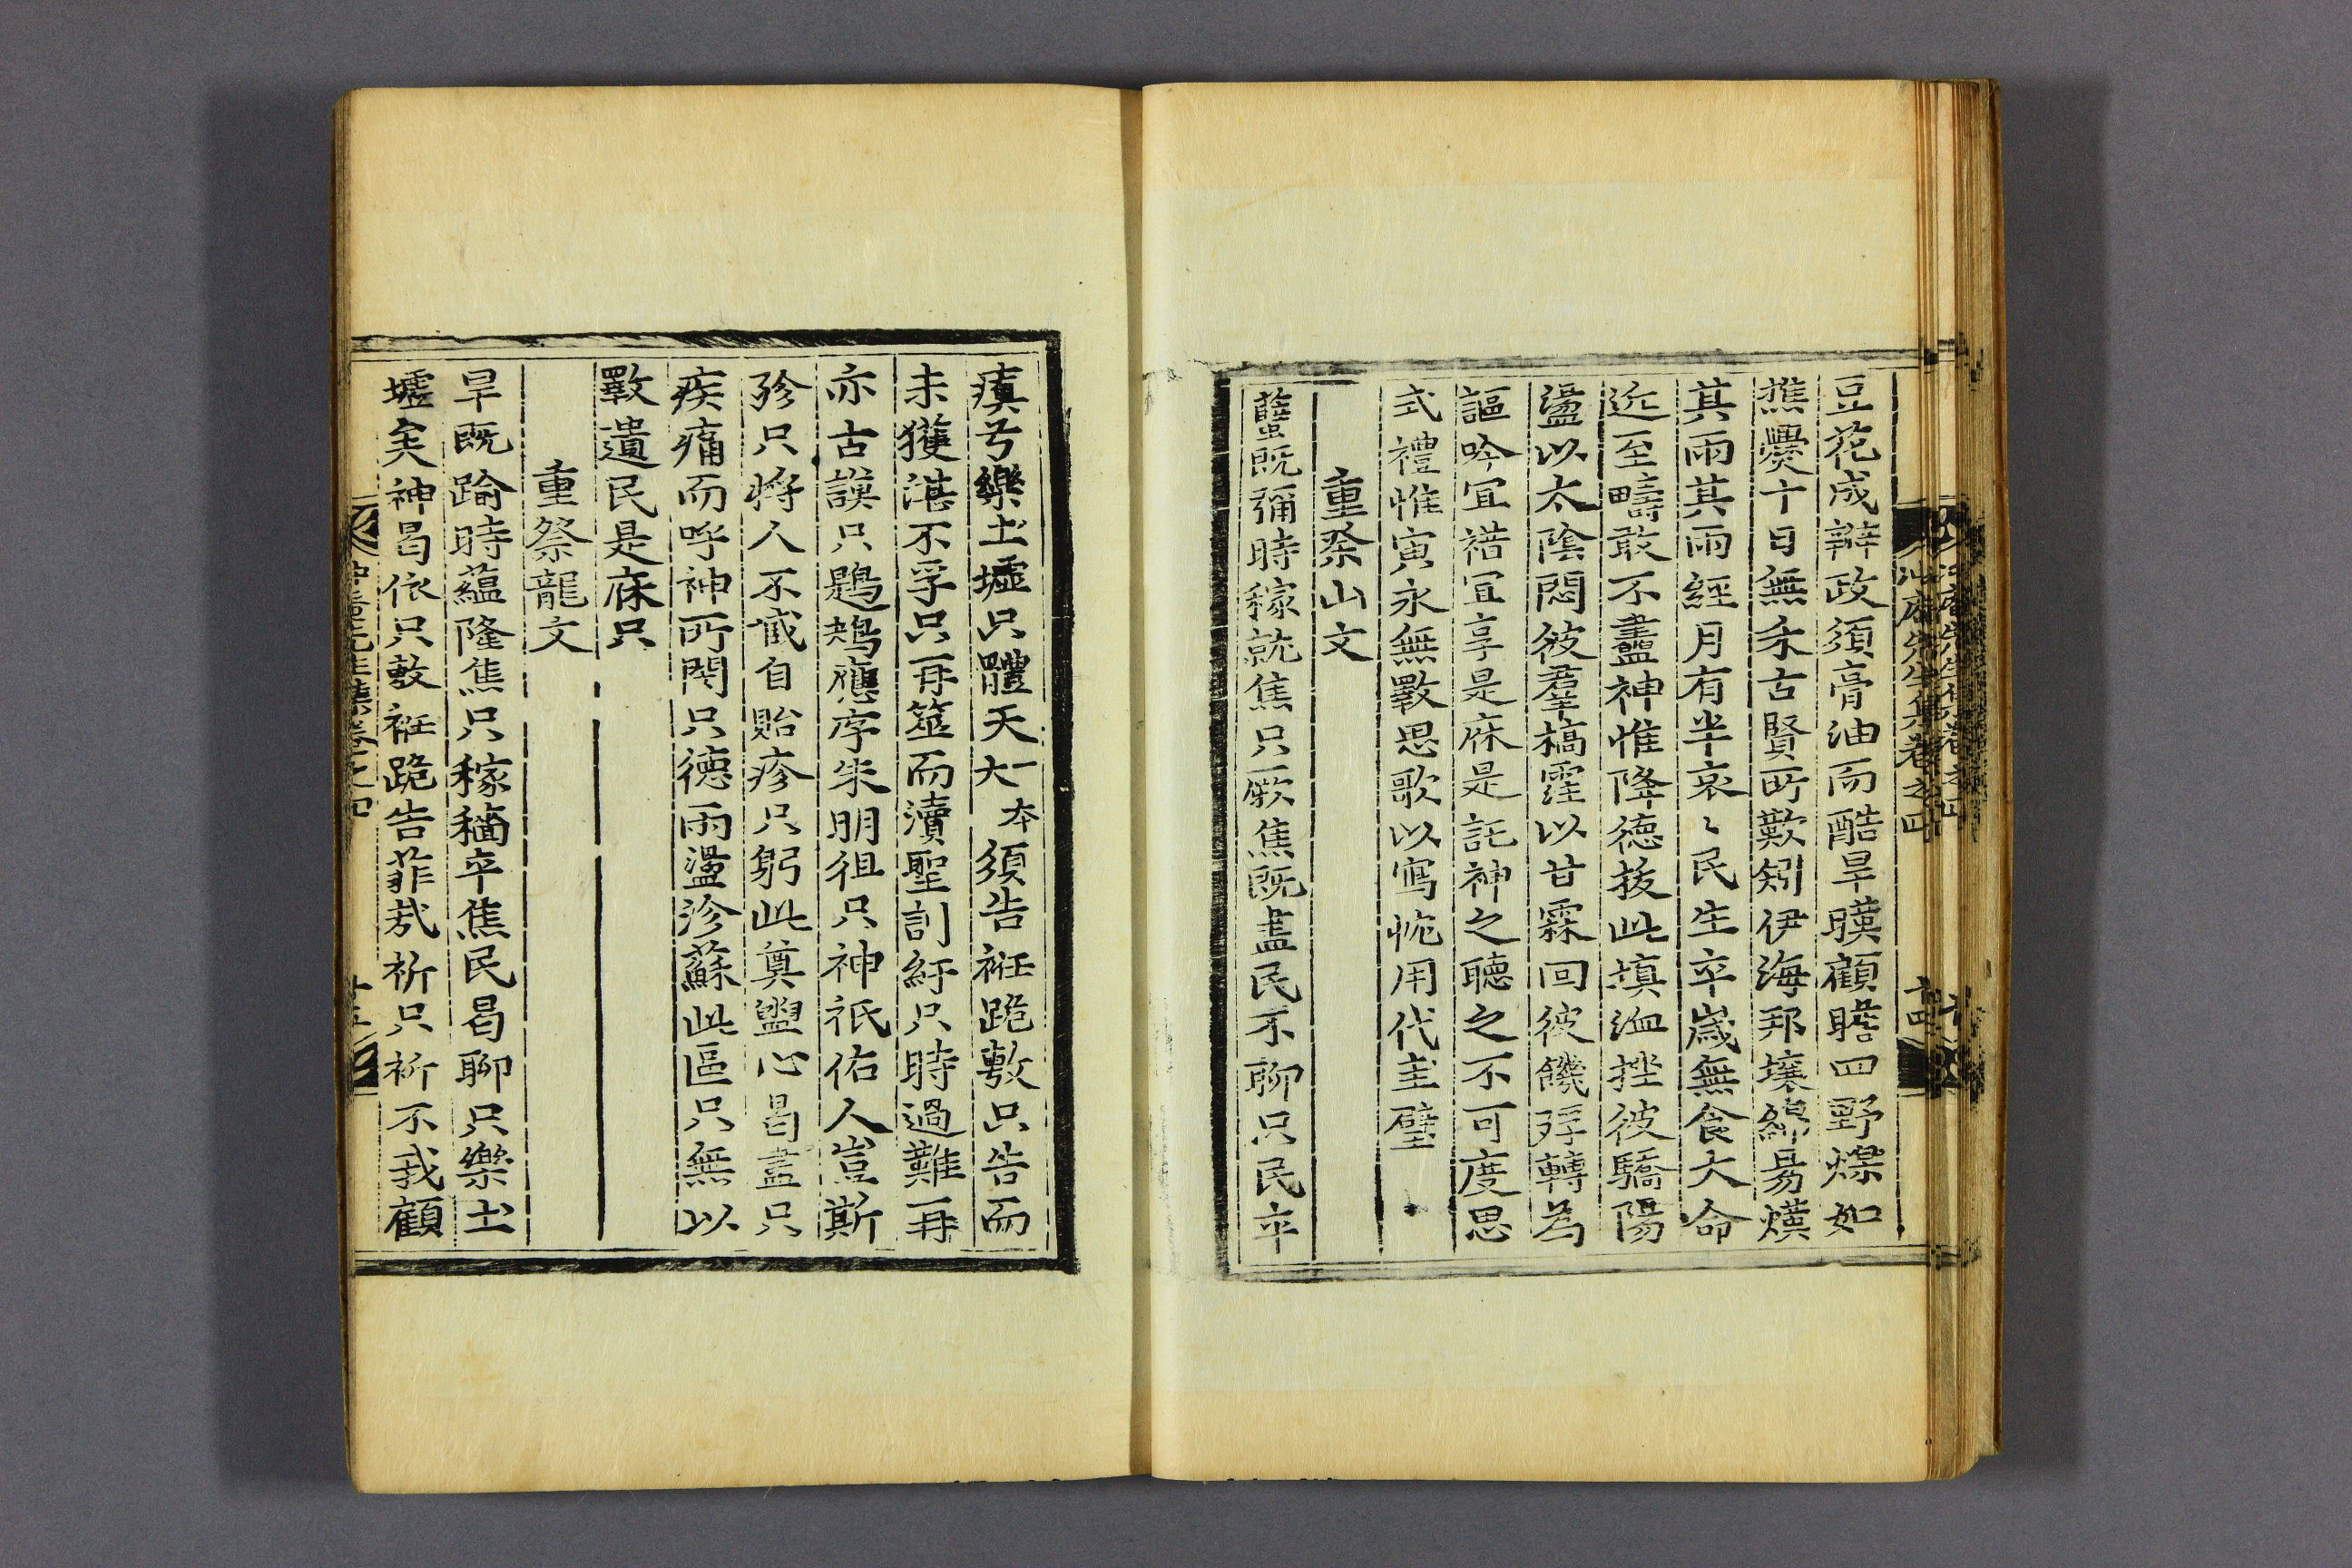 豆花成辦政須膏油而酷旱暵顧瞻四野燥如
樵爨十日無禾古賢所歎矧伊海邦壤綿易熯
其雨其雨經月有半哀〻民生卒歲無食大命
近至疇敢不盡神惟降德拔此塡洫挫彼驕陽
盪以太陰悶彼羣槁霔以甘霖回彼饑殍轉爲
謳吟宜禧宜享是庥是託神之聽之不可度思
式禮惟寅永無斁思歌以寫忱用代圭璧
重祭山文
蘊旣彌時稼就焦只厥焦旣盡民不聊只民卒
瘨兮樂土墟只體天大一本須告袵跪敷只告而
未獲湛不孚只再筮而瀆聖訓紆只時過難再
亦古謨只鶗鴂應序朱明徂只神祇佑人豈斯
殄只將人不臧自貽疹只躬此奠盥心曷盡只
疾痛而呼神所閔只德雨盪沴蘇此區只無以
斁遺民是庥只
重祭龍文
旱旣踰時蘊隆焦只稼穡卒焦民曷聊只樂土
墟矣神曷依只敷袵跪告菲我祈只祈不我顧
先生集卷之四